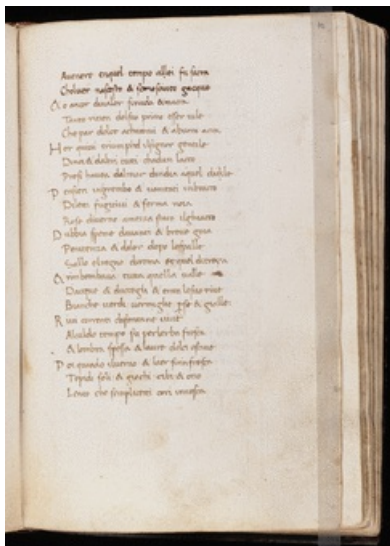 Avenere et inquel tempo allei fu sacra
Chelver nascosto & sconosciuto giacque
& a ncor divalor si nuda & macra
Tanto ritien delsuo primo esser vile
Che par dolce acattivi & abuoni acra
H or quivi triumpho ilsignor gentile
Dinoi & daltri tutti chadun laccio
Presi havea dalmar dindia aquelditile
P ensieri ingrembo & vanitati inbraccio
Diletti fugitivi & ferma noia
Rose diverno ameza state ilghiaccio
D ubbia speme davanti & breve gioia
Penitenza & dolor dopo lespalle
Sallo elregno diroma et quel ditroia
& rimbombava tutta quella valle
Dacque & daucegli & eran lesue rive
Bianche verdi vermiglie perse & gialle
R ivi correnti difontane vive
Alcaldo tempo su perlerba fresca
& lombra spessa & laure dolci estive
P oi quando elverno & laer sirinfresca
Tepidi soli & giochi cibi & otio
Lento che semplicetti cori invesca